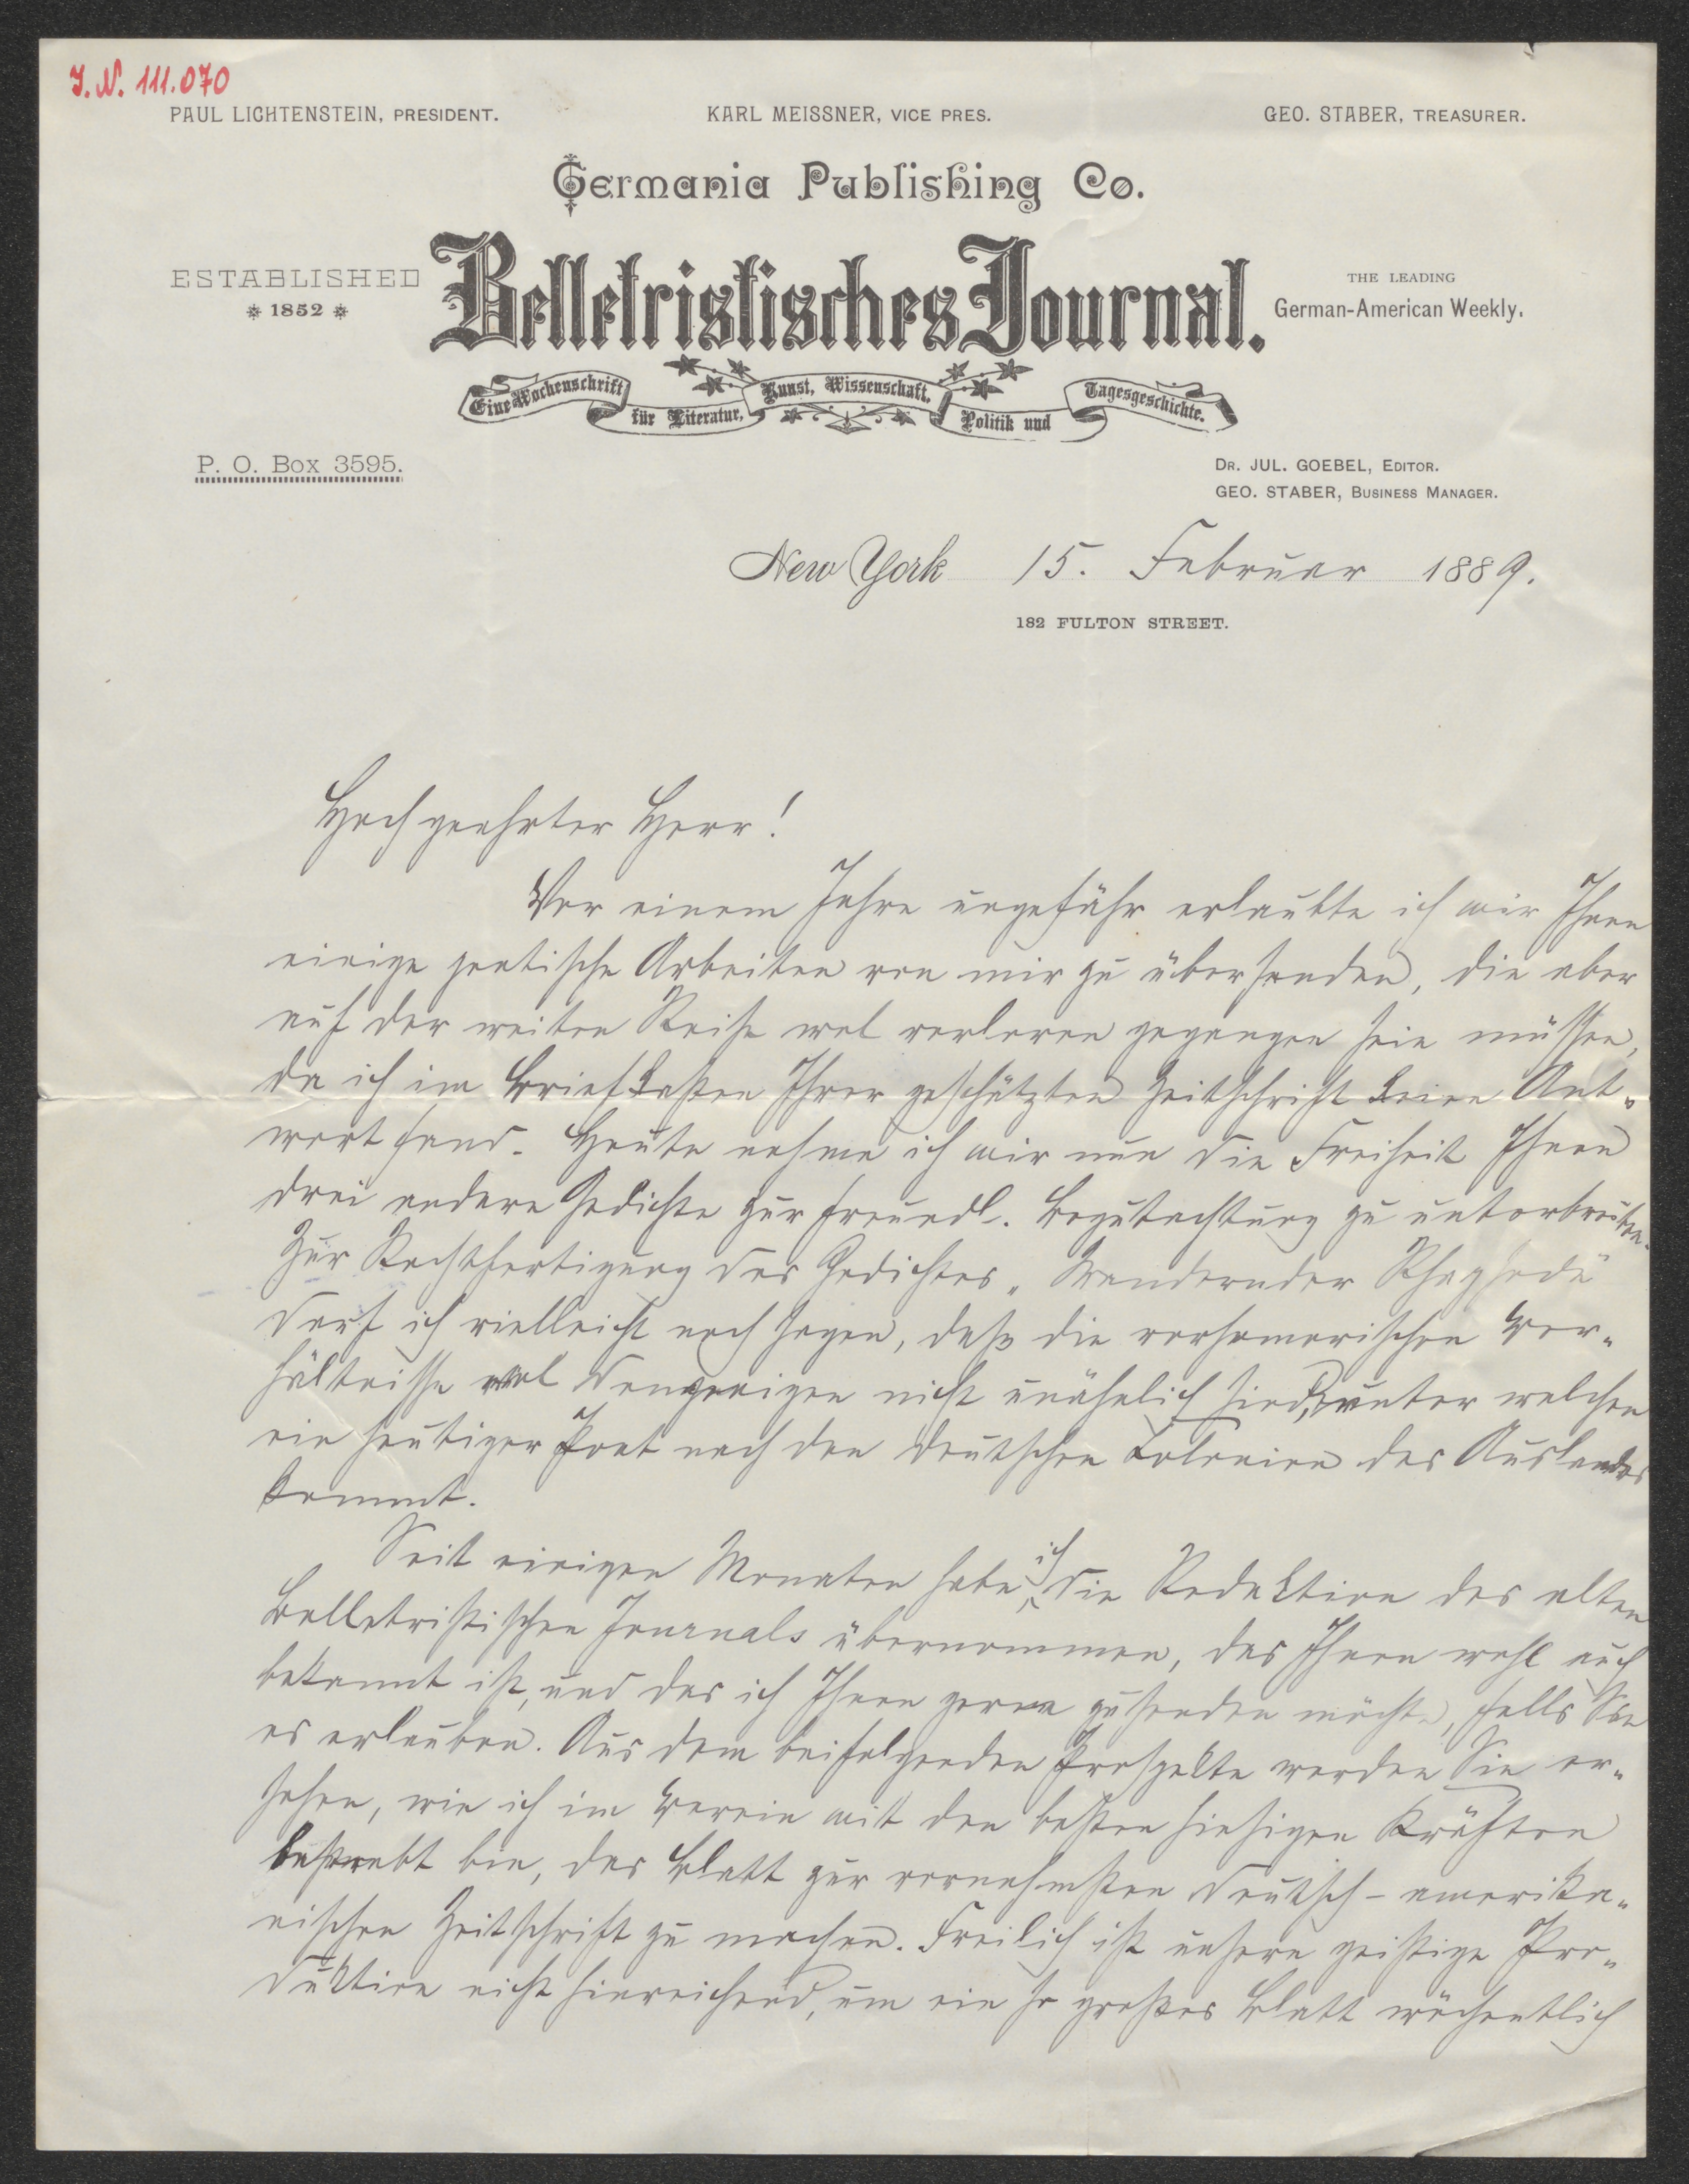 I. N. 111.070
PAUL LICHTENSTEIN, PRESIDENT. KARL MEISSNER, VICE PRES. GEO. STABER, TREASURER.
Germania Publishing Co.
ESTABLISHED
1852
Belletristisches Journal.
THE LEADING
German-American Weekly.
Eine Wochenschrift für Literatur, Kunst, Wissenschaft, Politik und Tagesgeschichte.
P. O. Box 3595.
DR. JUL. GOEBEL, EDITOR.
GEO. STABER, BUSINESS MANAGER.
New York 15. Februar 1889.
182 FULTON STREET.
Hochgeehrter Herr!
Vor einem Jahre ungefähr erlaubte ich mir Ihnen
einige poetische Arbeiten von mir zu übersenden, die aber
auf der weiten Reise wol verloren gegangen sein müssen,
da ich im Briefkasten Ihrer geschätzten Zeitschrift keine Ant-
wort fand. Heute nehme ich mir nun die Freiheit Ihnen
drei andere Gedichte zur freundl. Begutachtung zu unterbreiten.
Zur Rechtfertigung des Gedichtes „Wandernder Rhapsode"
darf ich vielleicht noch sagen, daß die vorhomerischen Ver-
hältnisse wol denjenigen nicht unähnlich sind, unter welchen
ein heutiger Poet nach den deutschen Colonien des Auslandes
kommt.
Seit einigen Monaten habe ich die Redaktion des alten
Belletristischen Journals übernommen, das Ihnen wohl auch
bekannt ist, und das ich Ihnen gerne zusenden möchte, falls Sie
es erlauben. Aus dem beifolgenden Prospekte werden Sie er-
sehen, wie ich im Verein mit den besten hiesigen Kräften
bestrebt bin, das Blatt zur vornehmsten deutsch-amerika-
nischen Zeitschrift zu machen. Freilich ist unsere geistige Pro-
duktion nicht hinreichend, um ein so großes Blatt wöchentlich